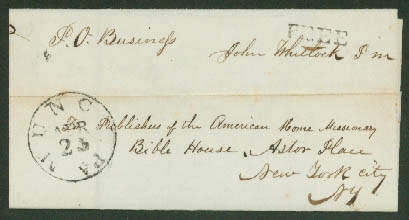 P.O. Business
FREE
John Whitlock P m
MUNCY PA
APR
23
To Publishers of the American Home Missionary
Bible House, Astor Place
New York city
NY